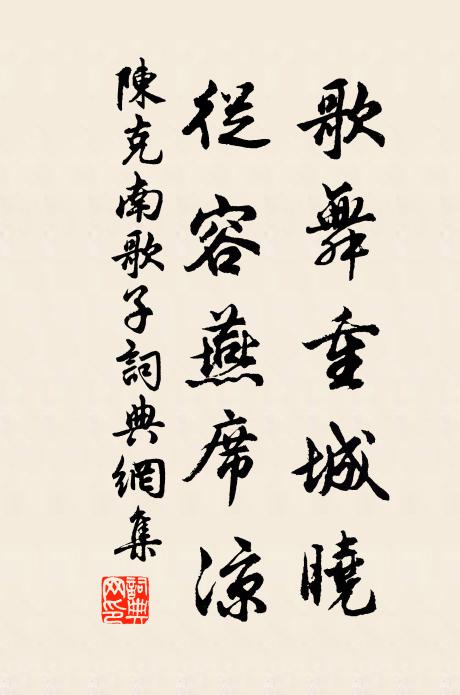 歌舞重城曉
從容燕席涼
陳克南歌子詞典網集
詞典網印